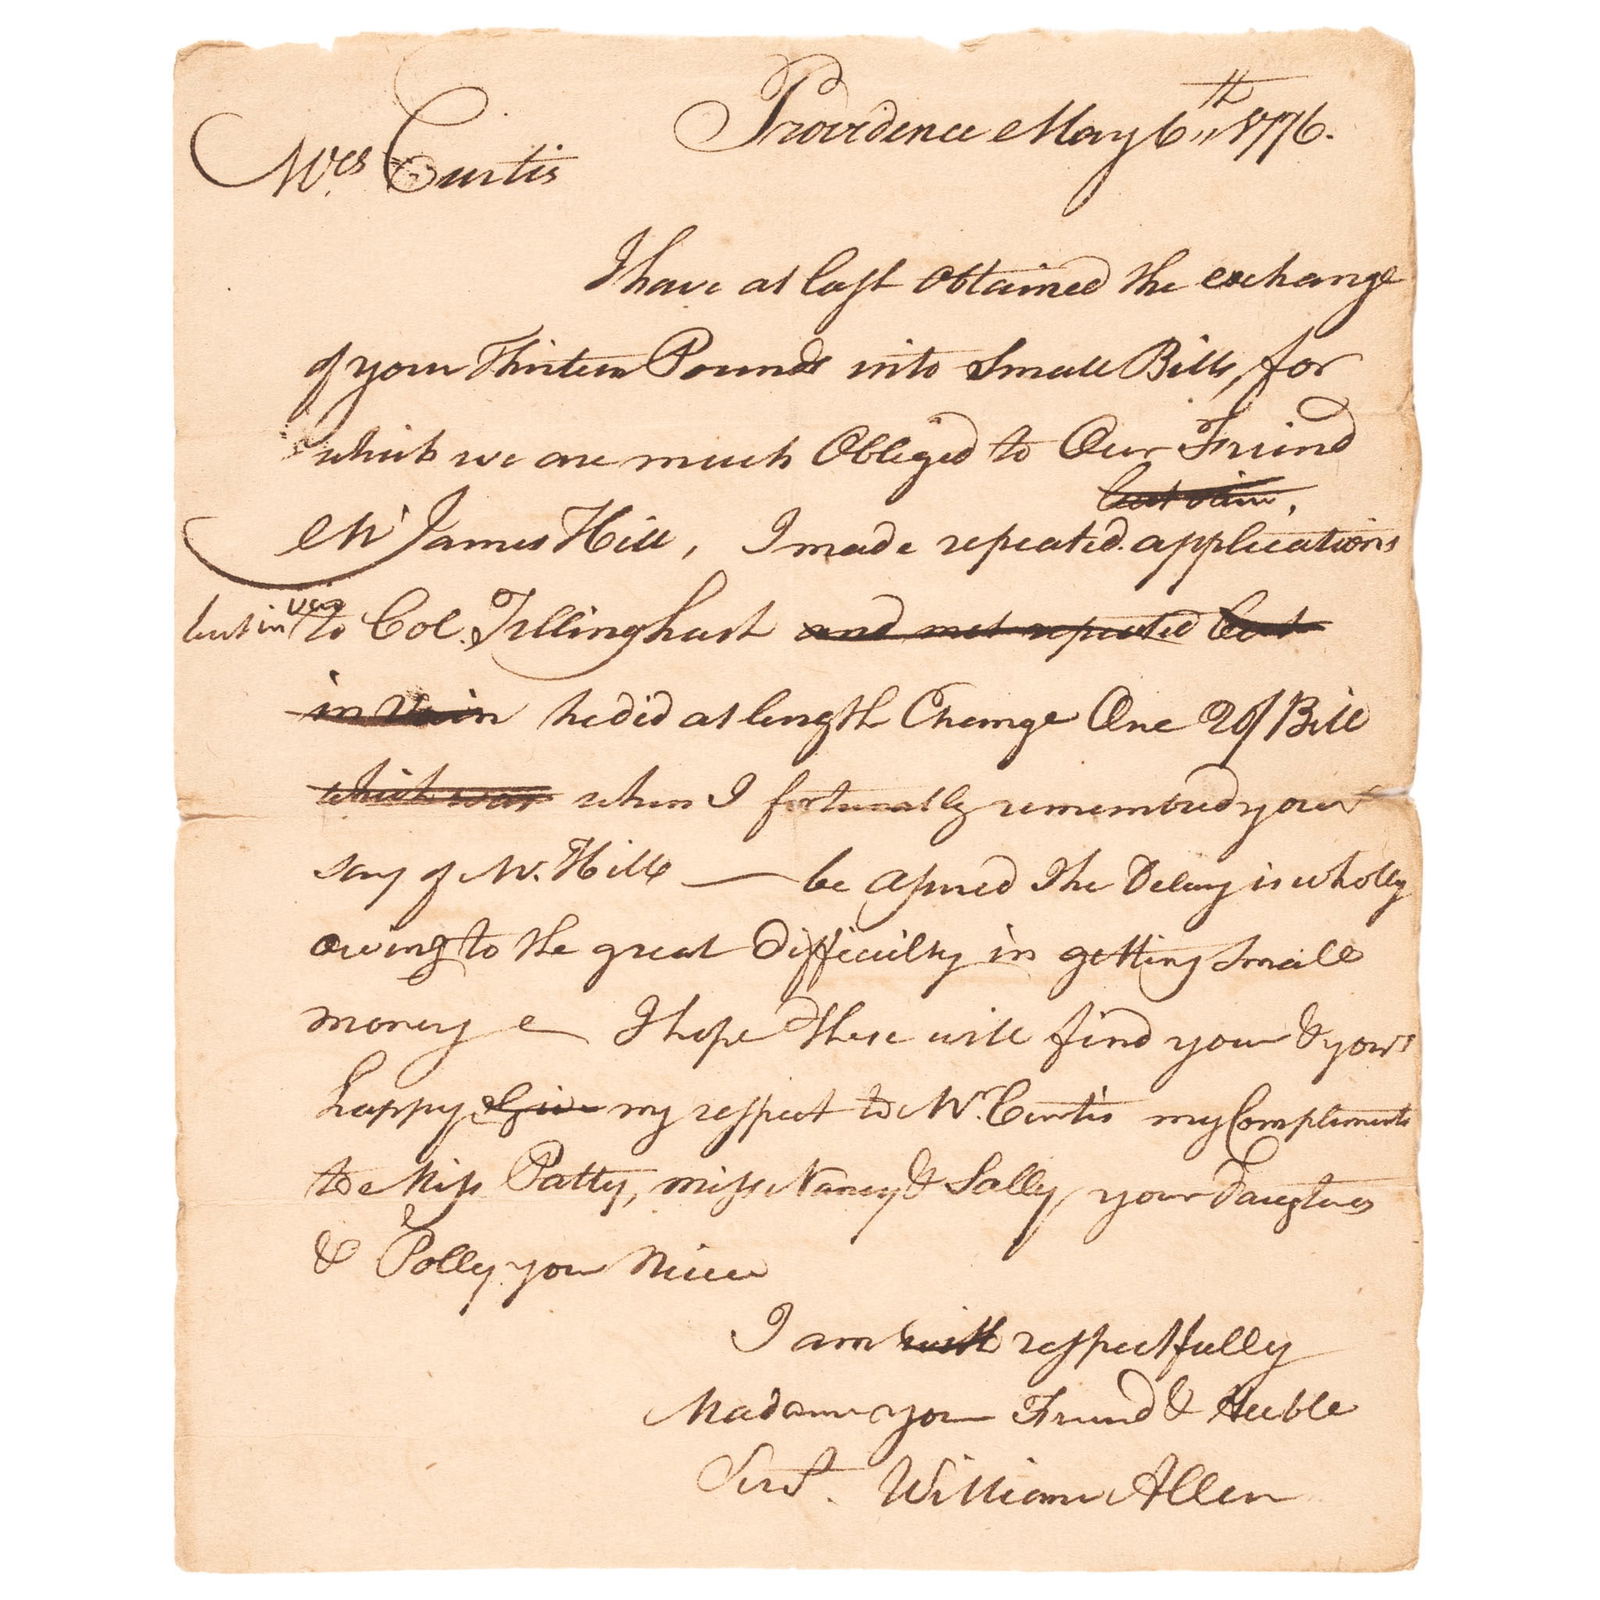 Providence May 6th 1776.
Mrs Curtis
I have at last Obtained the exchange
of your Thirteen Pounds into Small Bills, for
which we are much Obliged to Our Friend
but vain,
Mr James Hill, I made repeated applications
but in vain to Col. Tillinghast and met repeated but
in Vain he did at length Change One 20/ Bill
which was when I fortunatly remembred your
say of Mr. Hill — be assured The Delay is wholly
owing to the great Difficulty in getting Small
money I hope These will find you & yours
happy Give my respect to Mr. Curtis my Compliments
to Miss Patty, miss Nancy & Sally, your Daughters
& Polly your Niece
I am with respectfully
Madam your Friend & Huble
Servt. William Allen